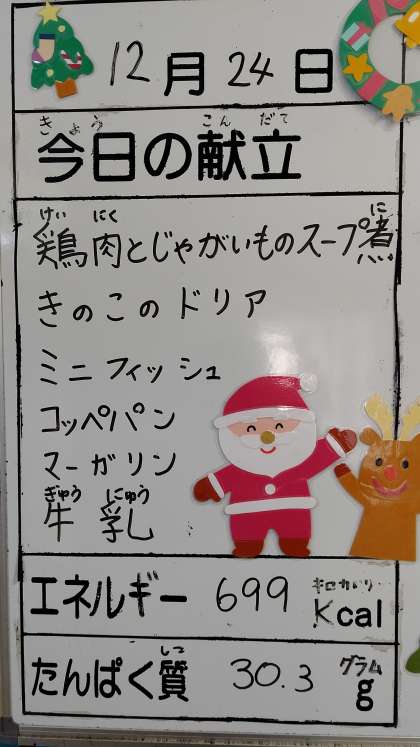 12月24日
きょう こん だて
今日の献立
けい にく に
鶏肉とじゃがいものスープ煮
きのこのドリア
ミニフィッシュ
コッペパン
マーガリン
ぎゅう にゅう
牛乳
キロカロリー
エネルギー 699 Kcal
しつ グラム
たんぱく質 30.3 g